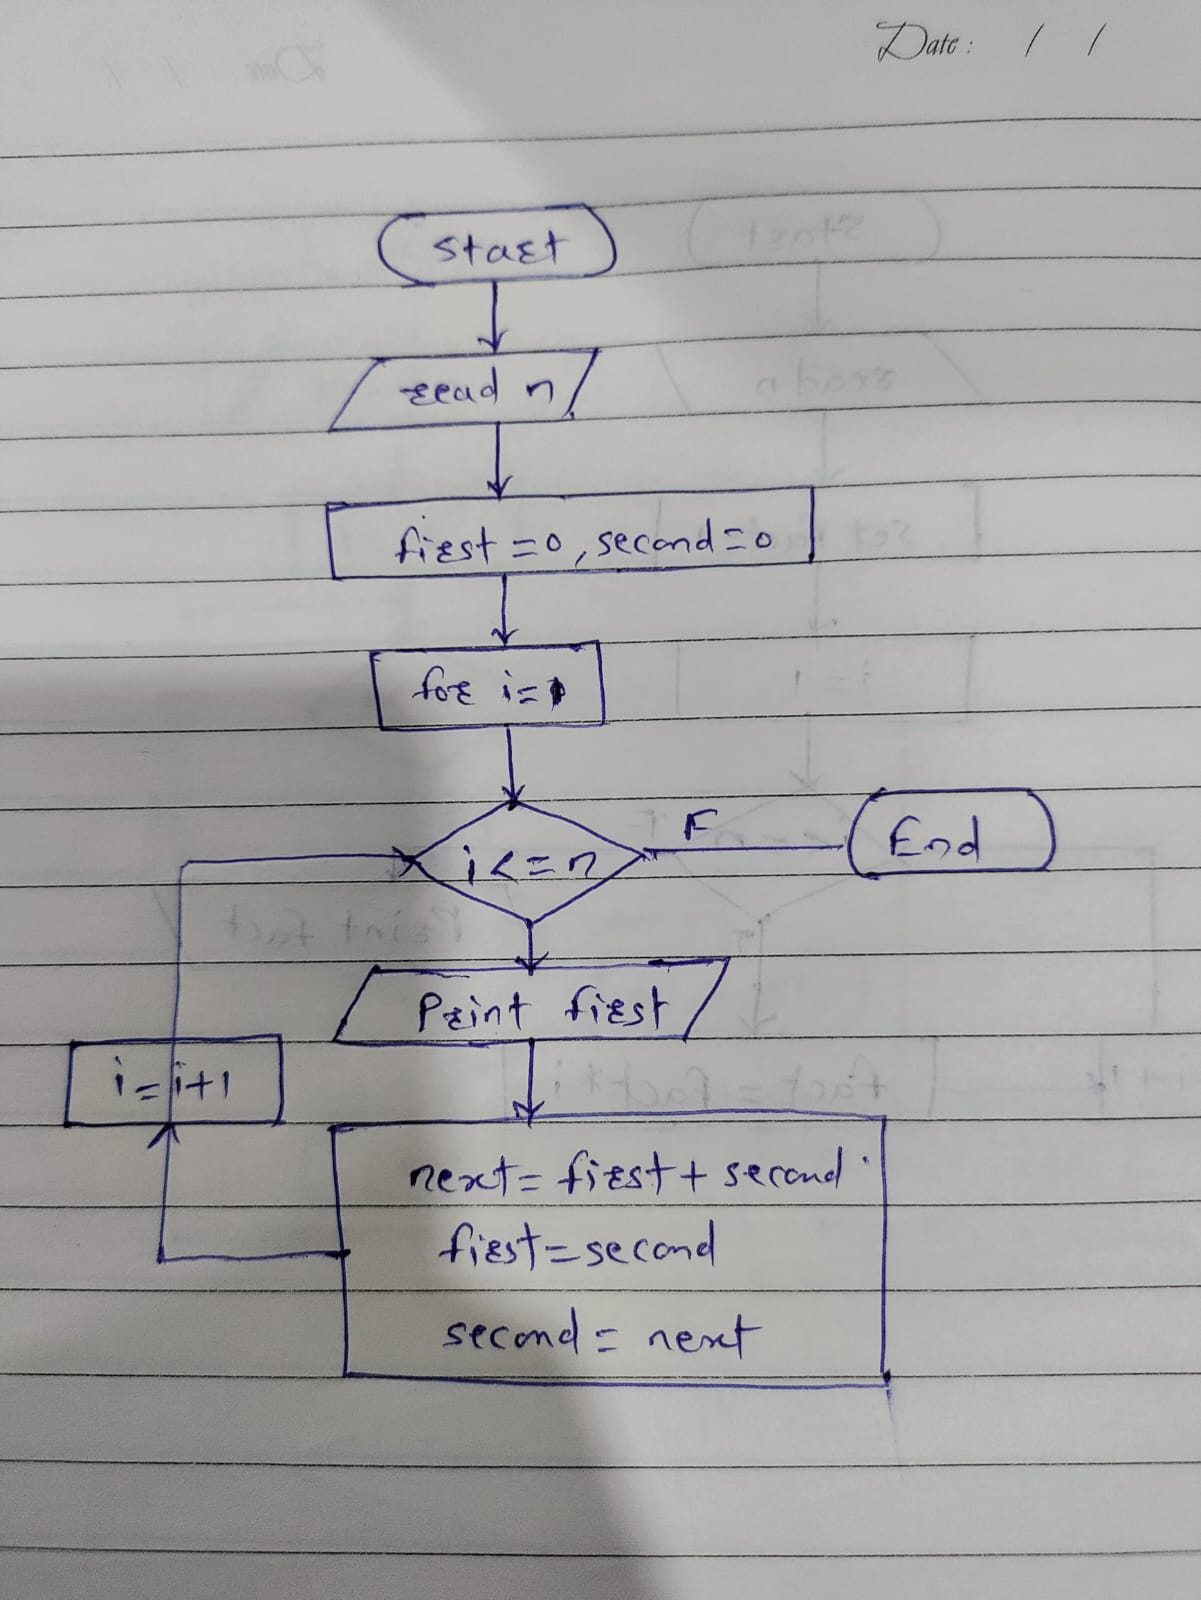 Date: / /
Start
read n
first = 0, second = 0
for i = 1
i <= n
F
End
Print first
i = i+1
next = first + second
first = second
second = next